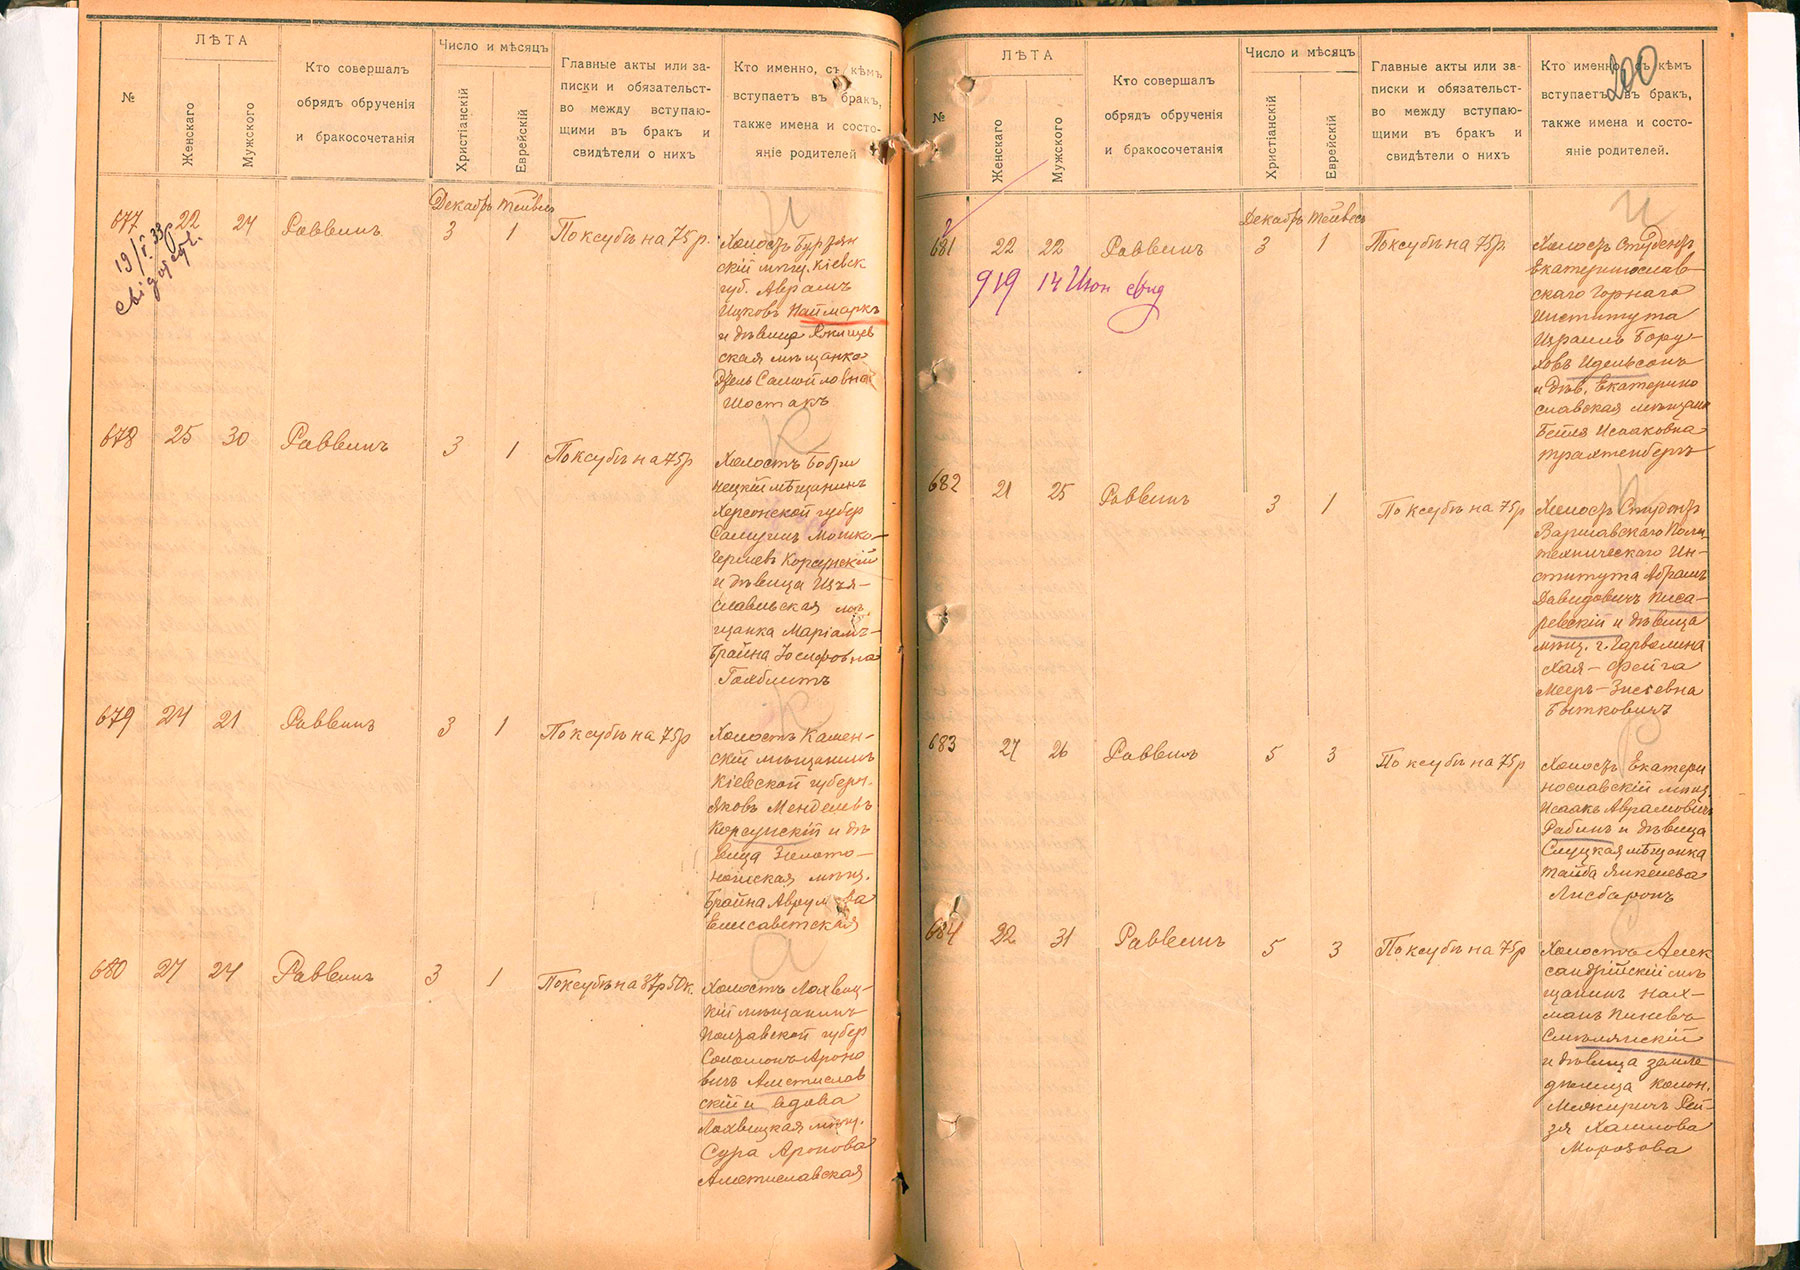 №
ЛѢТА
Женскаго
Мужского
Кто совершалъ
обрядъ обрученія
и бракосочетанія
Число и мѣсяцъ
Христіанскій
Еврейскій
Главные акты или за-
писки и обязательст-
во между вступаю-
щими въ бракъ и
свидѣтели о нихъ
Кто именно, съ кѣмъ
вступаетъ въ бракъ,
также имена и состо-
яніе родителей
Декабрь Тейвесъ
677 22 24 Раввинъ 3 1 По ксубѣ на 75 р.
19/I 33 р
И
Холостъ
скій мѣщ. Кіевск
губ. Аврамъ
Ицковъ Наймаркъ
и дѣвица
ская мѣщанка
Самойловна
Шостакъ
678 25 30 Раввинъ 3 1 По ксубѣ на 75 р
К
Холостъ Бобри
нецкій мѣщанинъ
Херсонской губер
Самуилъ Мошко-
Герш­евъ Корсунскій
и дѣвица Изъя-
славльская мѣ-
щанка Маріамъ-
Брайна Іосифовна
679 24 21 Раввинъ 3 1 По ксубѣ на 75 р
К
Холостъ Камен-
скій мѣщанинъ
Кіевской губерн.
Яковъ Менделевъ
Корсунскій и дѣ
вица Золото-
ношская мѣщ.
Брайна Аврумова
Елисаветская
680 27 24 Раввинъ 3 1 По ксубѣ на 37 р 50 к.
а
Холостъ Лохвиц-
кій мѣщанинъ
Полтавской губер
Соломонъ Ароно
вичъ Амстислав
скій и вдова
Лохвицкая мѣщ.
Сура Аронова
Амстиславская
200
№
ЛѢТА
Женскаго
Мужского
Кто совершалъ
обрядъ обрученія
и бракосочетанія
Число и мѣсяцъ
Христіанскій
Еврейскій
Главные акты или за-
писки и обязательст-
во между вступаю-
щими въ бракъ и
свидѣтели о нихъ
Кто именно, съ кѣмъ
вступаетъ въ бракъ,
также имена и состо-
яніе родителей.
Декабрь Тейвесъ
681 22 22 Раввинъ 3 1 По ксубѣ на 75 р
919 14 Июн свид
И
Холостъ Студентъ
Екатеринослав-
скаго Горнаго
Института
Израиль Бору-
ховъ Идельсонъ
и дѣв. Екатерино
славская мѣщанка
Бейля Исааковна
Трахтенбергъ
682 21 25 Раввинъ 3 1 По ксубѣ на 75 р
Холостъ Студентъ
Варшавскаго Поли
техническаго Ин-
ститута Абрамъ
Давидовичъ Писа-
ревскій и дѣвица
мѣщ. г.
Фейга
Мееръ-Зисевна
Быткович­ъ
683 27 26 Раввинъ 5 3 По ксубѣ на 75 р
Р
Холостъ Екатери
нославскій мѣщ.
Исаакъ Аврамовичъ
Рабинъ и дѣвица
Слуцкая мѣщанка
Тайба Янкелева
Лисбаронъ
684 22 31 Раввинъ 5 3 По ксубѣ на 75 р
С
Холостъ Алек
сандрійскій мѣ
щанинъ Нах-
манъ Пиневъ
Смѣлянскій
и дѣвица земле
дѣлица колон.
Межиричъ Рей-
зя Хаимова
Морозова